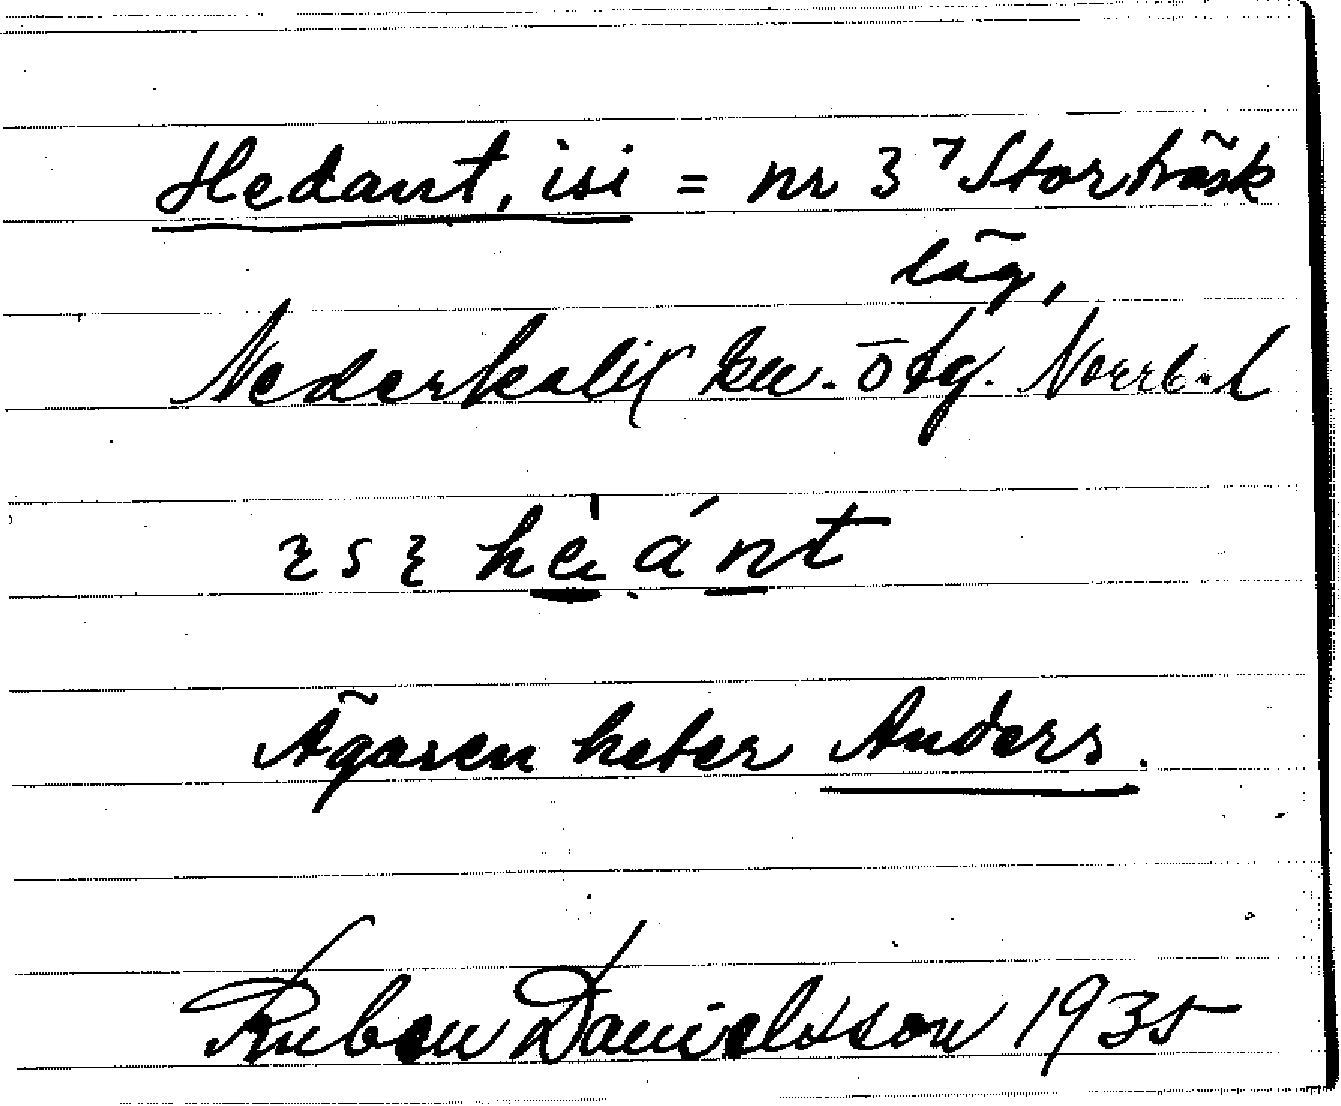 Hedant, isi = nr 3⁷ Storträsk
läg,
Nederkalix sn. ötg. Norrb. l
hèánt
Ägaren heter Anders.
Ruben Danielsson 1935